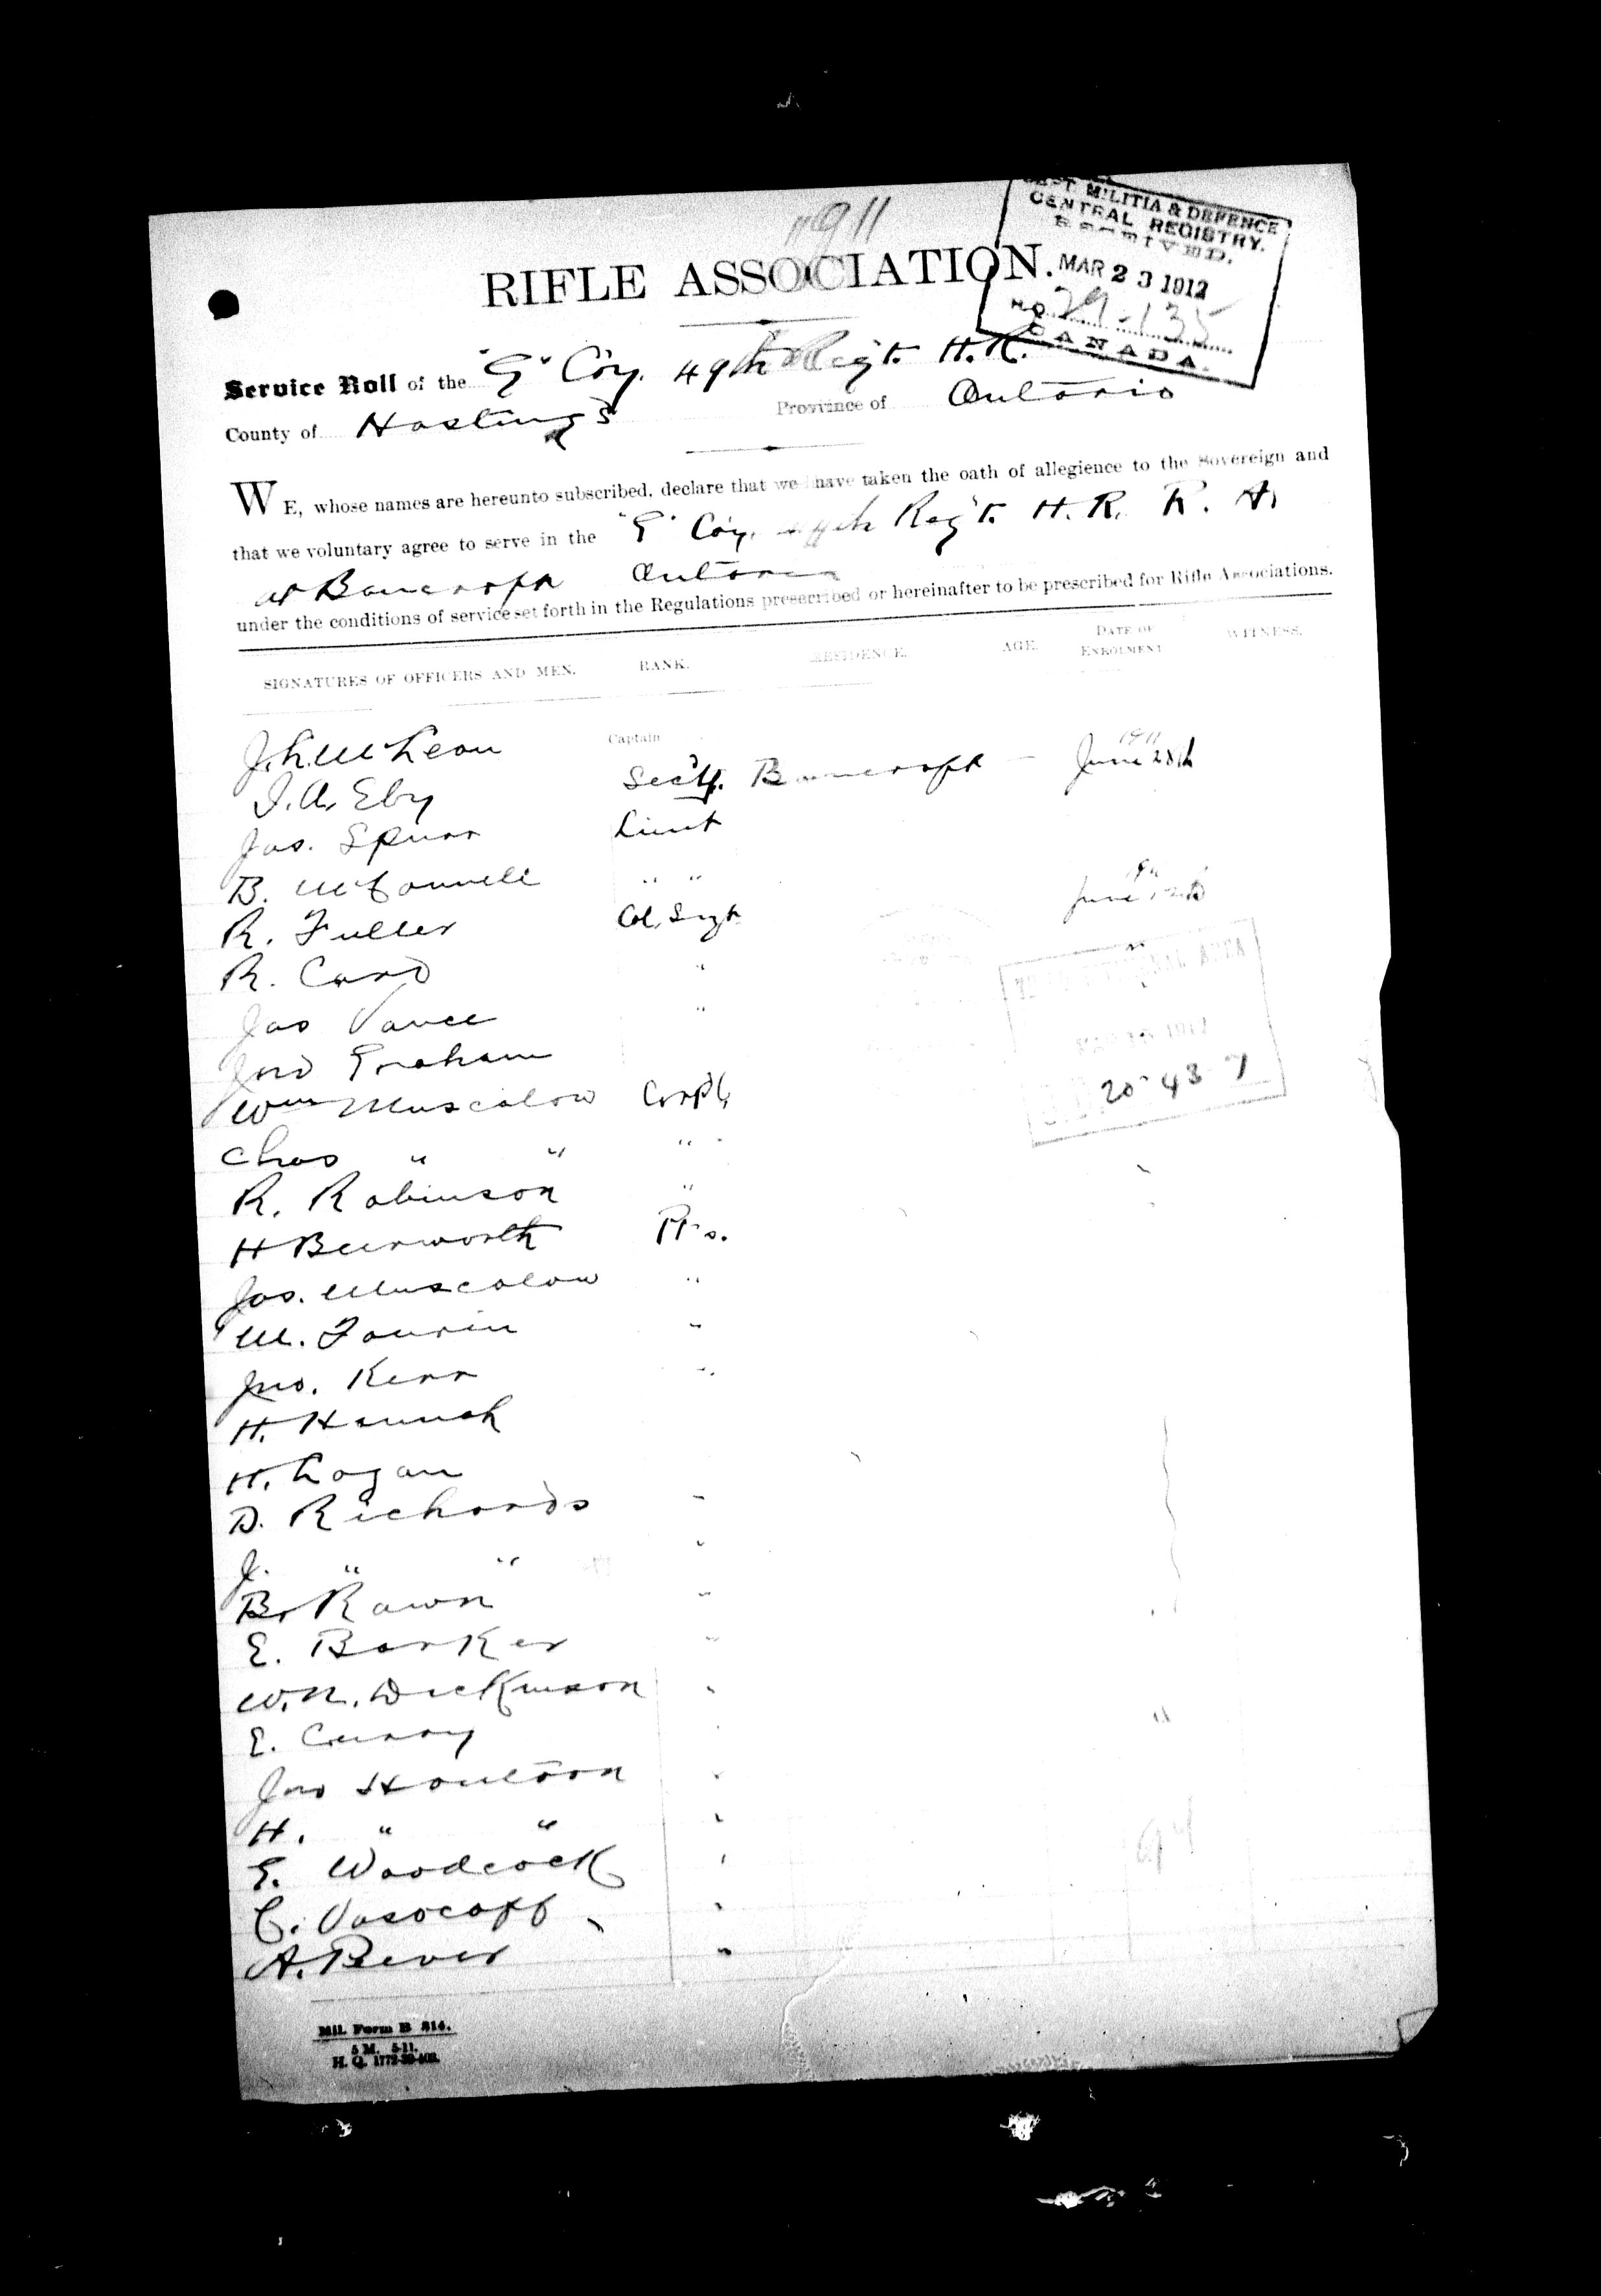 1911
DEPT. MILITIA & DEFENCE
CENTRAL REGISTRY.
RECEIVED.
MAR 23 1912
H.Q. 29-135
CANADA.
RIFLE ASSOCIATION.
Service Roll of the "G" Co'y. 49th Reg't. H.R.
County of Hastings Province of Ontario
WE, whose names are hereunto subscribed, declare that we have taken the oath of allegience to the Sovereign and
that we voluntary agree to serve in the "G" Co'y. 49th Reg't. H. R. R. A.
at Bancroft Ontario
under the conditions of service set forth in the Regulations prescribed or hereinafter to be prescribed for Rifle Associations.
SIGNATURES OF OFFICERS AND MEN. RANK. RESIDENCE. AGE. DATE OF ENROLMENT WITNESS.
J. L. McLean Captain 1911
J. A. Eby Sec'ty. Bancroft June 28th
Jas. Spurr Lieut
B. McConnell " "
R. Fuller Col. Sergt June
R. Card "
Jas Vance "
Jno Graham
Wm Muscalow Corpl.
Chas " " "
R. Robinson "
H Beerworth Pts.
Jos. Muscalow "
M. Fourin "
Jno. Kerr "
H. Hannah
H. Logan
D. Richards "
J. " " "
B. Rawn "
E. Barker "
W. N. Dickinson "
E. Curry "
Jno Houltoon "
H. " " "
G. Woodcock "
C. Vasocoff "
A. Bever "
1912
20-43-7
Mil. Form B 314.
5 M. 5-11.
H. Q. 1772-39-408.